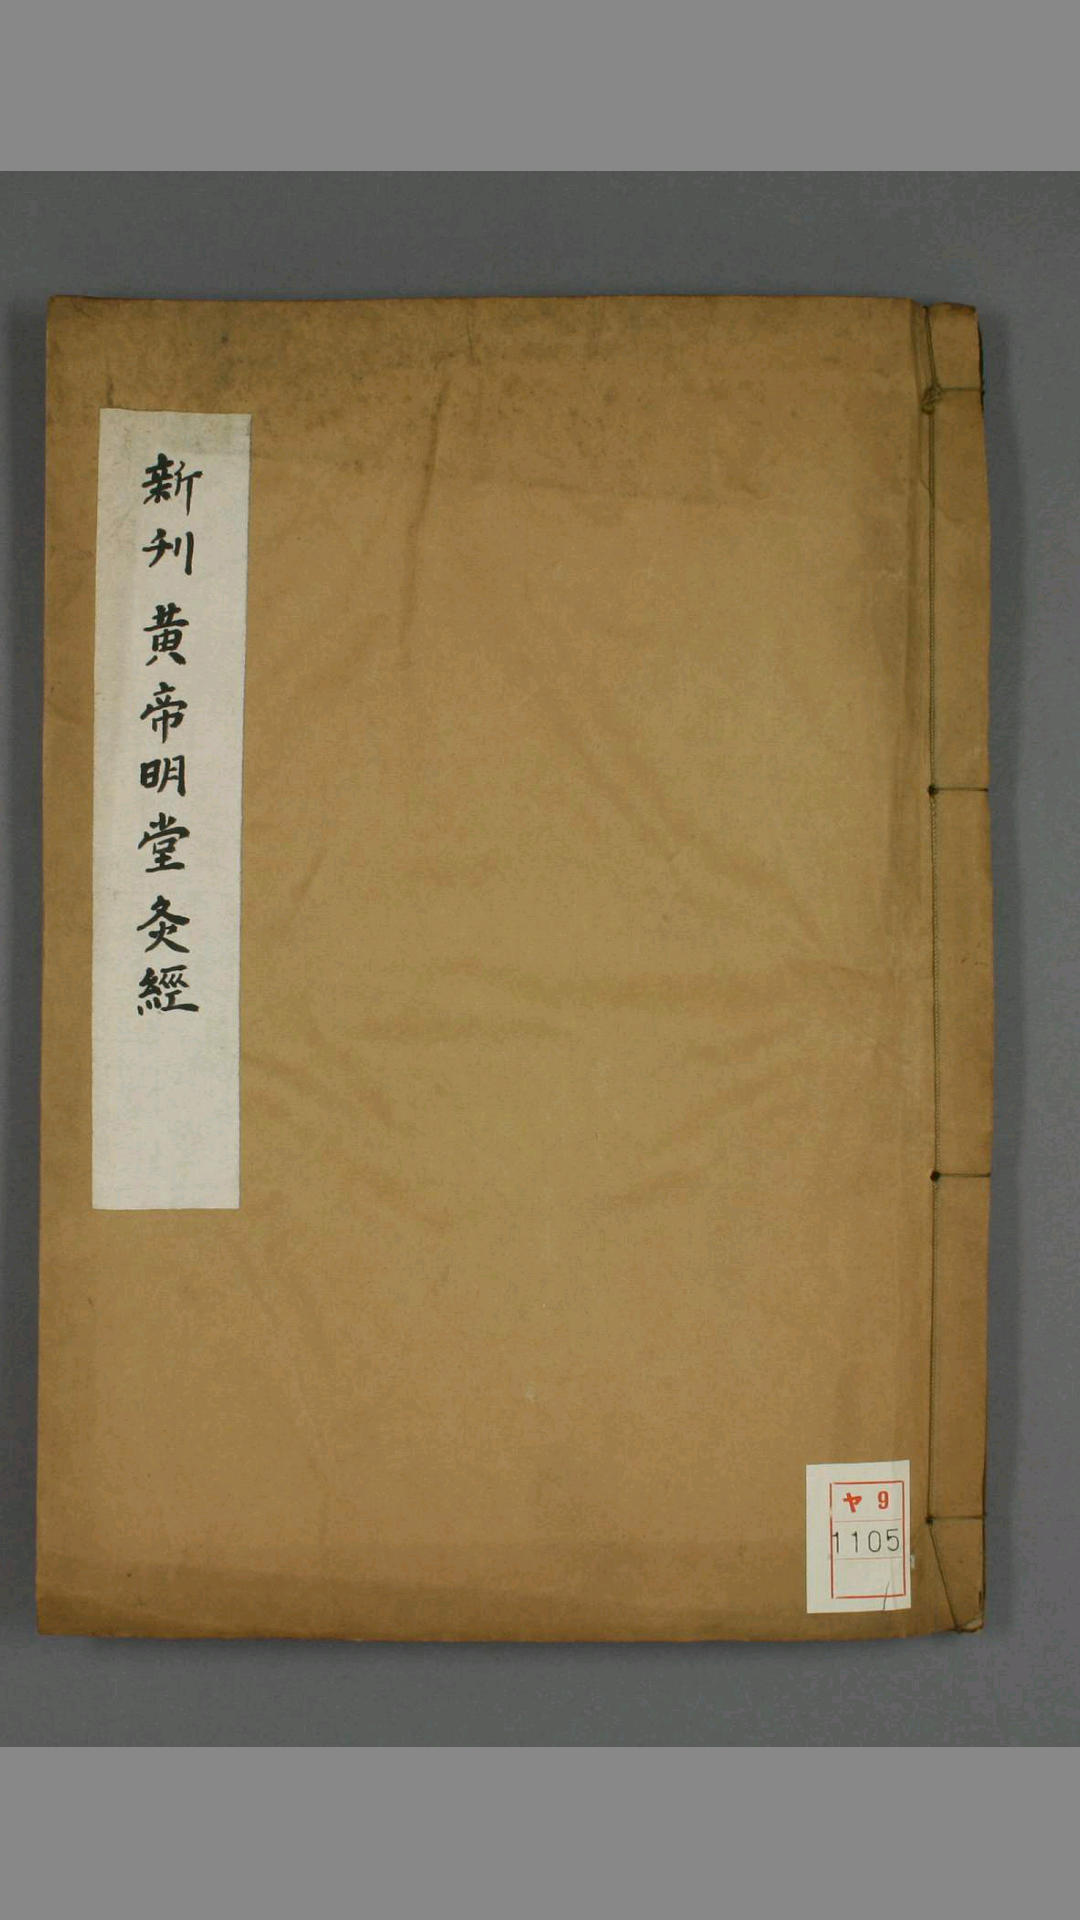 新刊 黄帝明堂灸經
ヤ 9
1105